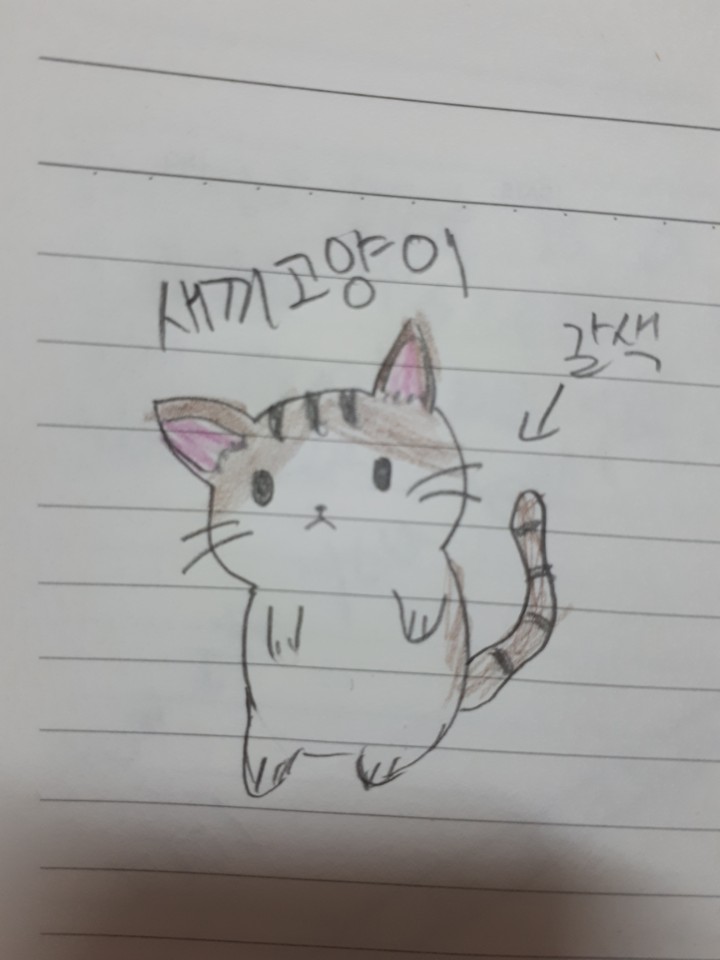 새끼고양이
갈색